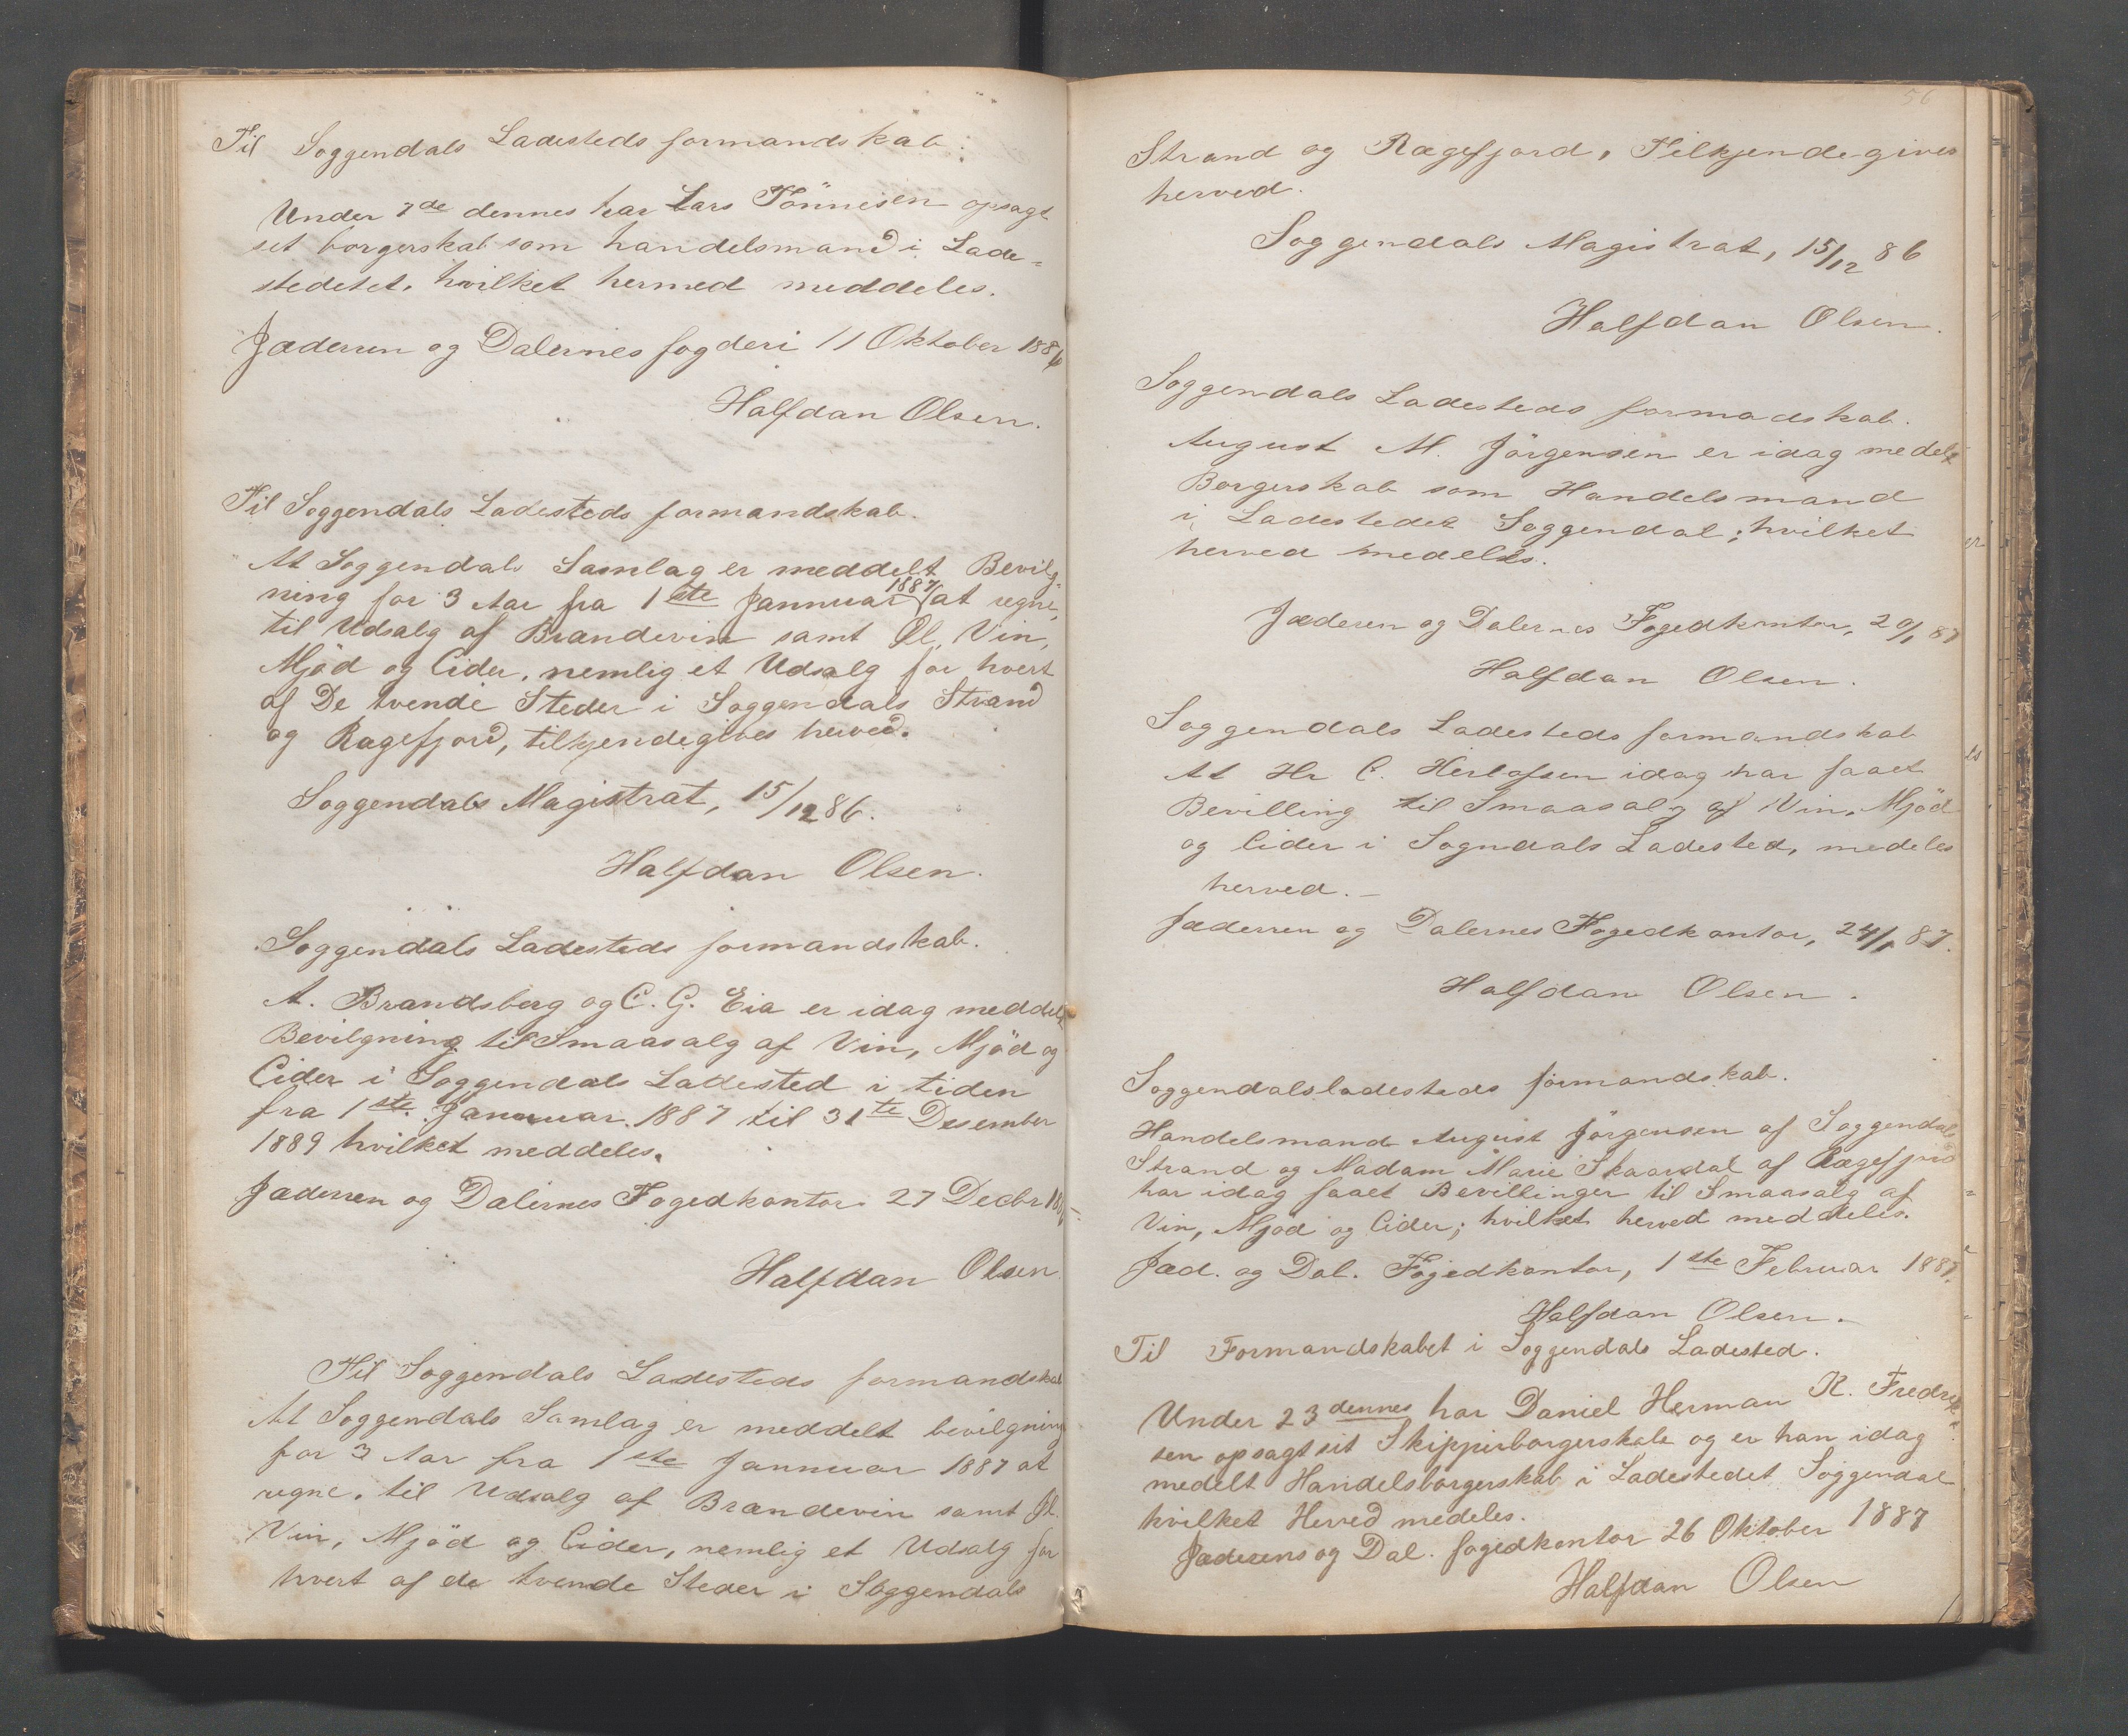 Til Soggendals Ladesteds formandskab:
Under 7de dennes har Lars Tönnesen opsagt
sit borgerskab som handelsmand i Lade=
stedetet, hvilket hermed meddeles.
Jæderen og Dalernes fogderi 11 Oktober 1886
Halfdan Olsen.
Til Soggendals Ladesteds formandskab.
At Soggendals Samlag er meddelt Bevilg=
ning for 3 Aar fra 1ste Jannuar 1887 at regne,
til Udsalg af Brændevin samt Øl, Vin,
Mjød og Cider, nemlig et Udsalg for hvert
af De tvende Steder i Soggendals Strand
og Rægefjord, tilkjendegives herved.
Soggendals Magistrat, 15/12 86.
Halfdan Olsen.
Soggendals Ladesteds formandskab.
A. Brandsberg og C. G. Eia er idag meddelt
Bevilgning til Smaasalg af Vin, Mjöd og
Cider i Soggendals Ladested i tiden
fra 1ste Januar 1887 til 31te Desember
1889 hvilket meddeles.
Jæderen og Dalernes Fogedkontor 27 Decbr 1886
Halfdan Olsen
Til Soggendals Ladesteds formandskab
At Soggendals Samlag er meddelt bevilgning
for 3 Aar fra 1ste Jannuar 1887 at
regne, til Udsalg af Brændevin samt Øl.
Vin, Mjöd og Cider, nemlig et Udsalg for
hvert af de tvende Steder i Soggendals
56
Strand og Rægefjord, Tilkjendegives
herved.
Soggendals Magistrat, 15/12 86
Halfdan Olsen.
Soggendals Ladesteds formadskab.
August M. Jörgensen er idag medelt
Borgerskab som Handelsmand
i Ladestedet Soggendal; hvilket
herved medeles.
Jæderen og Dalernes Fogedkontor, 20/1 87
Halfdan Olsen.
Soggendals Ladesteds formandskab
At Hr C. Herlofsen idag har faaet
Bevilling til Smaasalg af Vin, Mjöd
og Cider i Sogndals Ladested, medeles
herved.—
Jæderen og Dalernes Fogedkontor, 24/1 87.
Halfdan Olsen.
Soggendalsladesteds formandskab.
Handelsmand August Jörgensen af Soggendals
Strand og Madam Marie Skaardal af Rægefjord
har idag faaet Bevillinger til Smaasalg af
Vin, Mjöd og Cider; hvilket herved meddeles.
Jæd. og Dal. Fogedkontor, 1ste Februar 1887.
Halfdan Olsen.
Til Formandskabet i Soggendals Ladested.
Under 23 dennes har Daniel Herman K. Fredrik=
sen opsagt sit Skipperborgerskab og er han idag
medelt Handelsborgerskab i Ladestedet Soggendal
hvilket Herved medeles.
Jæderens og Dal. fogedkontor 26 Oktober 1887
Halfdan Olsen